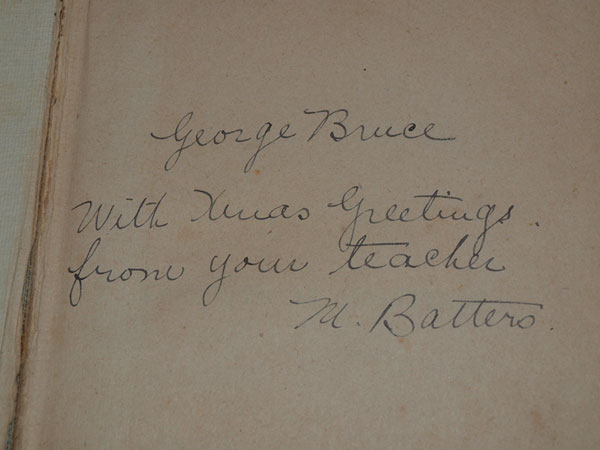 George Bruce
With Xmas Greetings.
from your teacher
M. Batters.